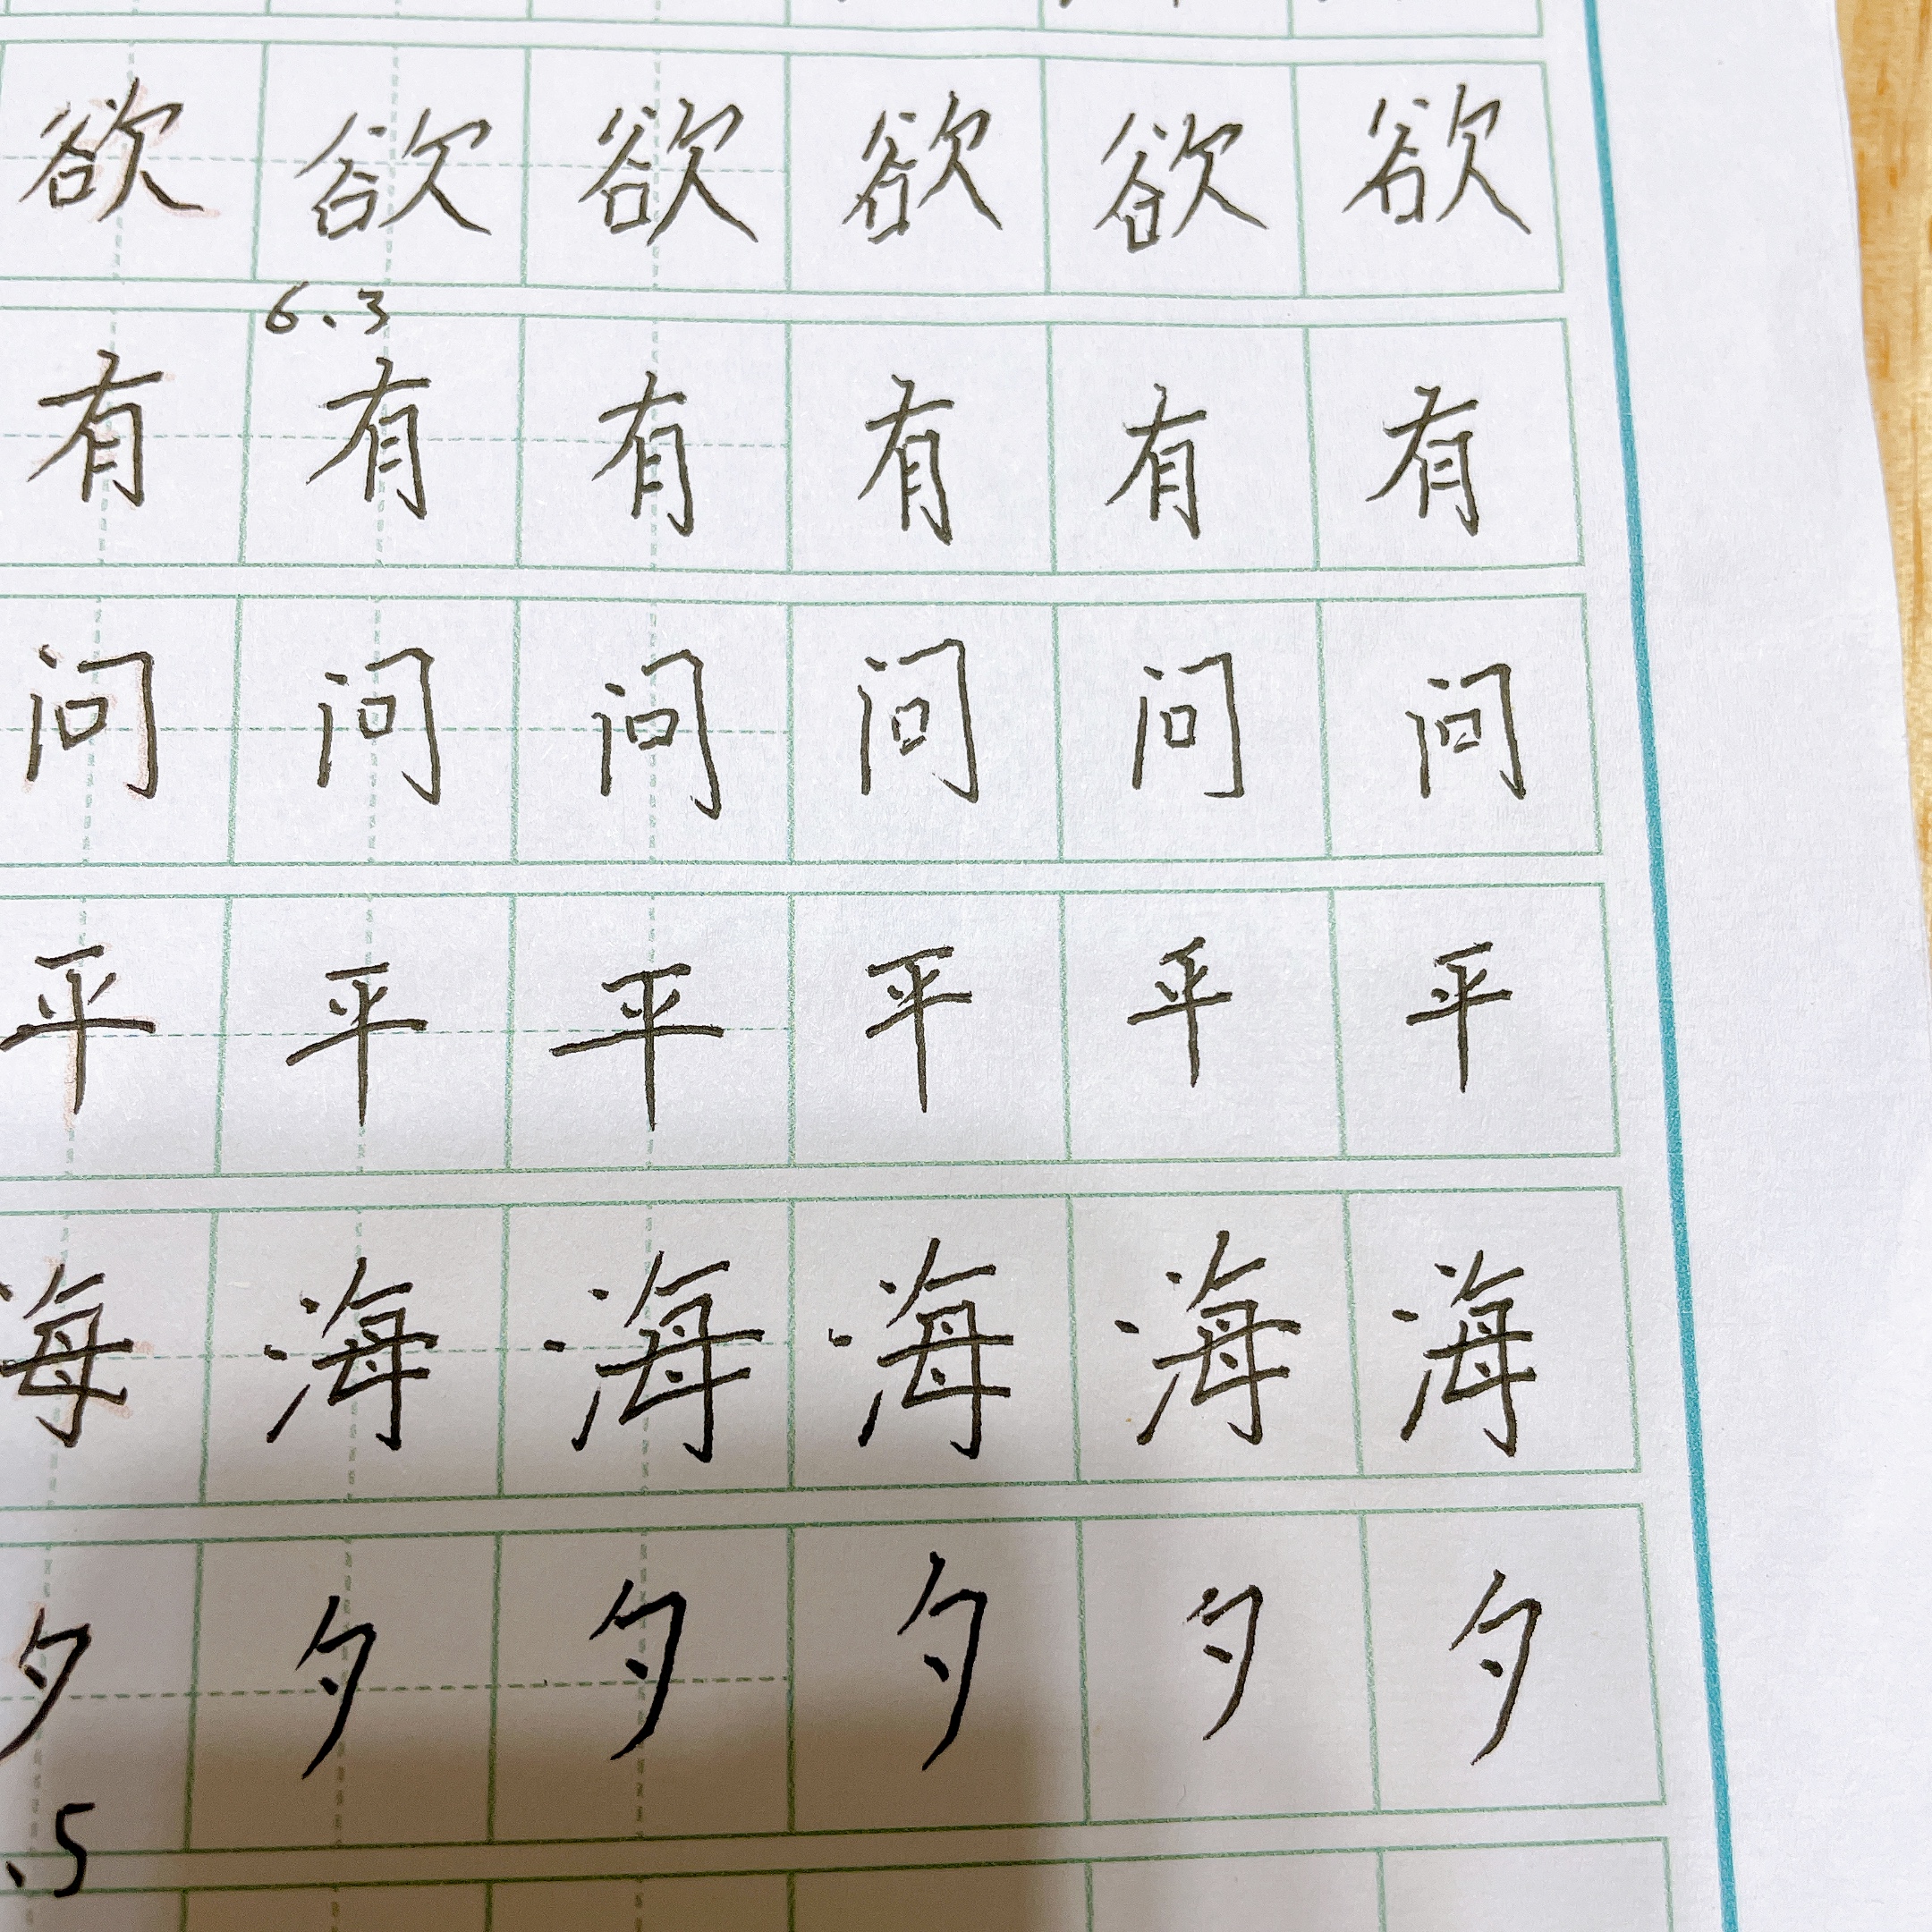 欲欲欲欲欲欲
6.3
有有有有有有
问问问问问问
平平平平平平
海海海海海海
夕夕夕夕夕夕
.5